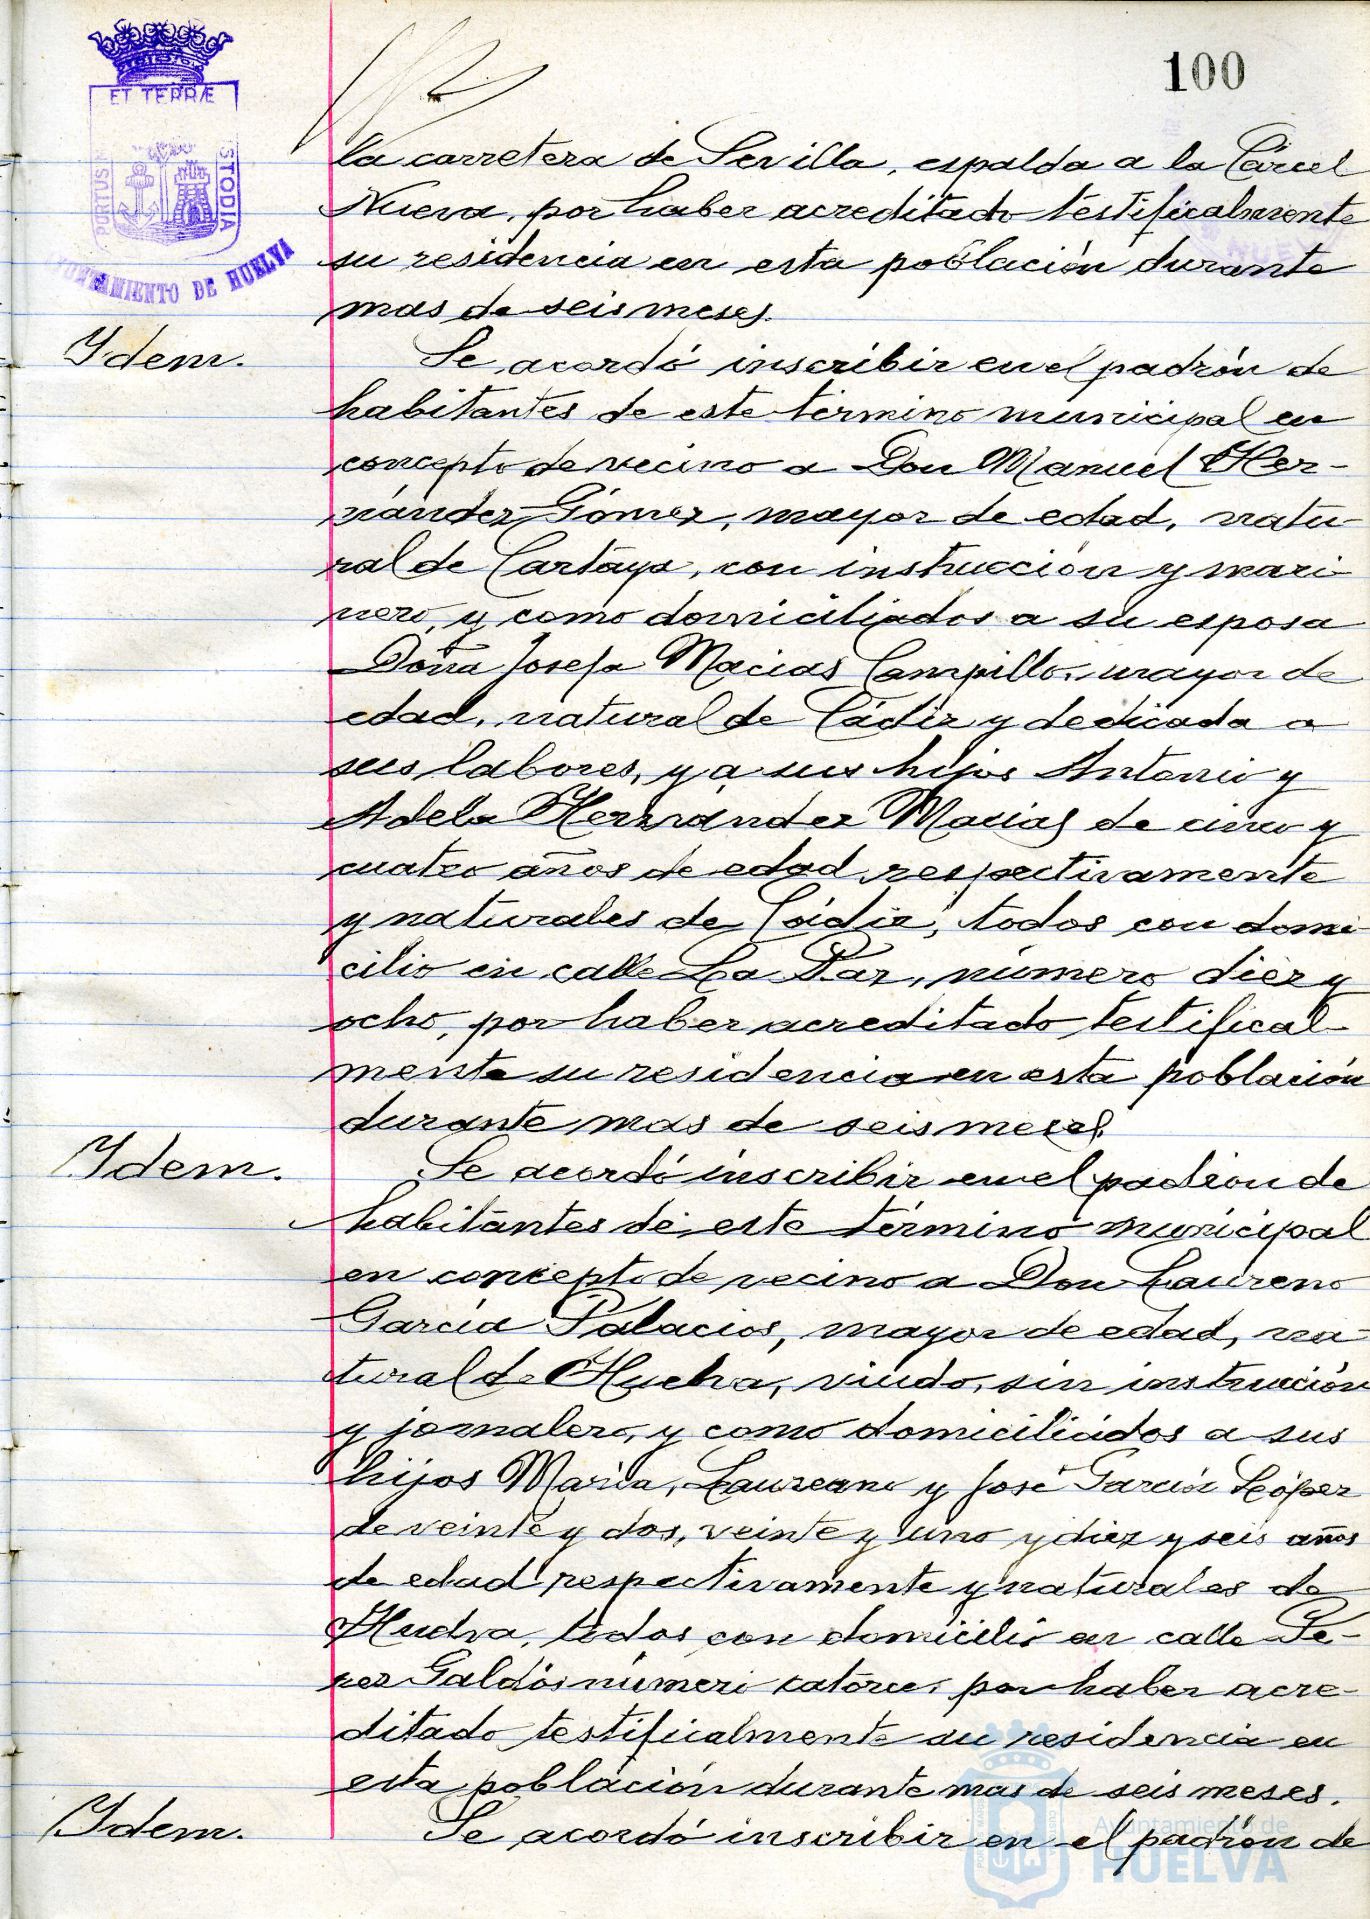 100
ET TERRÆ
PORTUS M
STODIA
AYUNTAMIENTO DE HUELVA
la carretera de Sevilla, espalda a la Cárcel
Nueva, por haber acreditado testificalmente
su residencia en esta población durante
mas de seis meses.
Idem.
Se acordó inscribir en el padrón de
habitantes de este término municipal en
concepto de vecino a Don Manuel Her-
nández Gómez, mayor de edad, natu-
ral de Cartaya, con instrucción y mari-
nero, y como domiciliados a su esposa
Doña Josefa Macias Campillo, mayor de
edad, natural de Cádiz y dedicada a
sus labores, y a sus hijos Antonio y
Adela Hernández Macias de cinco y
cuatro años de edad respectivamente
y naturales de Cádiz, todos con domi-
cilio en calle La Paz, número diez y
ocho, por haber acreditado testifical-
mente su residencia en esta población
durante mas de seis meses.
Idem.
Se acordó inscribir en el padrón de
habitantes de este término municipal
en concepto de vecino a Don Laureno
García Palacios, mayor de edad, na-
tural de Huelva, viudo, sin instrucción
y jornalero, y como domiciliados a sus
hijos María, Laureano y José García López
de veinte y dos, veinte y uno y diez y seis años
de edad respectivamente y naturales de
Huelva, todos con domicilio en calle Pé-
rez Galdós número catorce, por haber acre-
ditado testificalmente su residencia en
esta población durante mas de seis meses.
Idem.
Se acordó inscribir en el padrón de
Ayuntamiento de
HUELVA